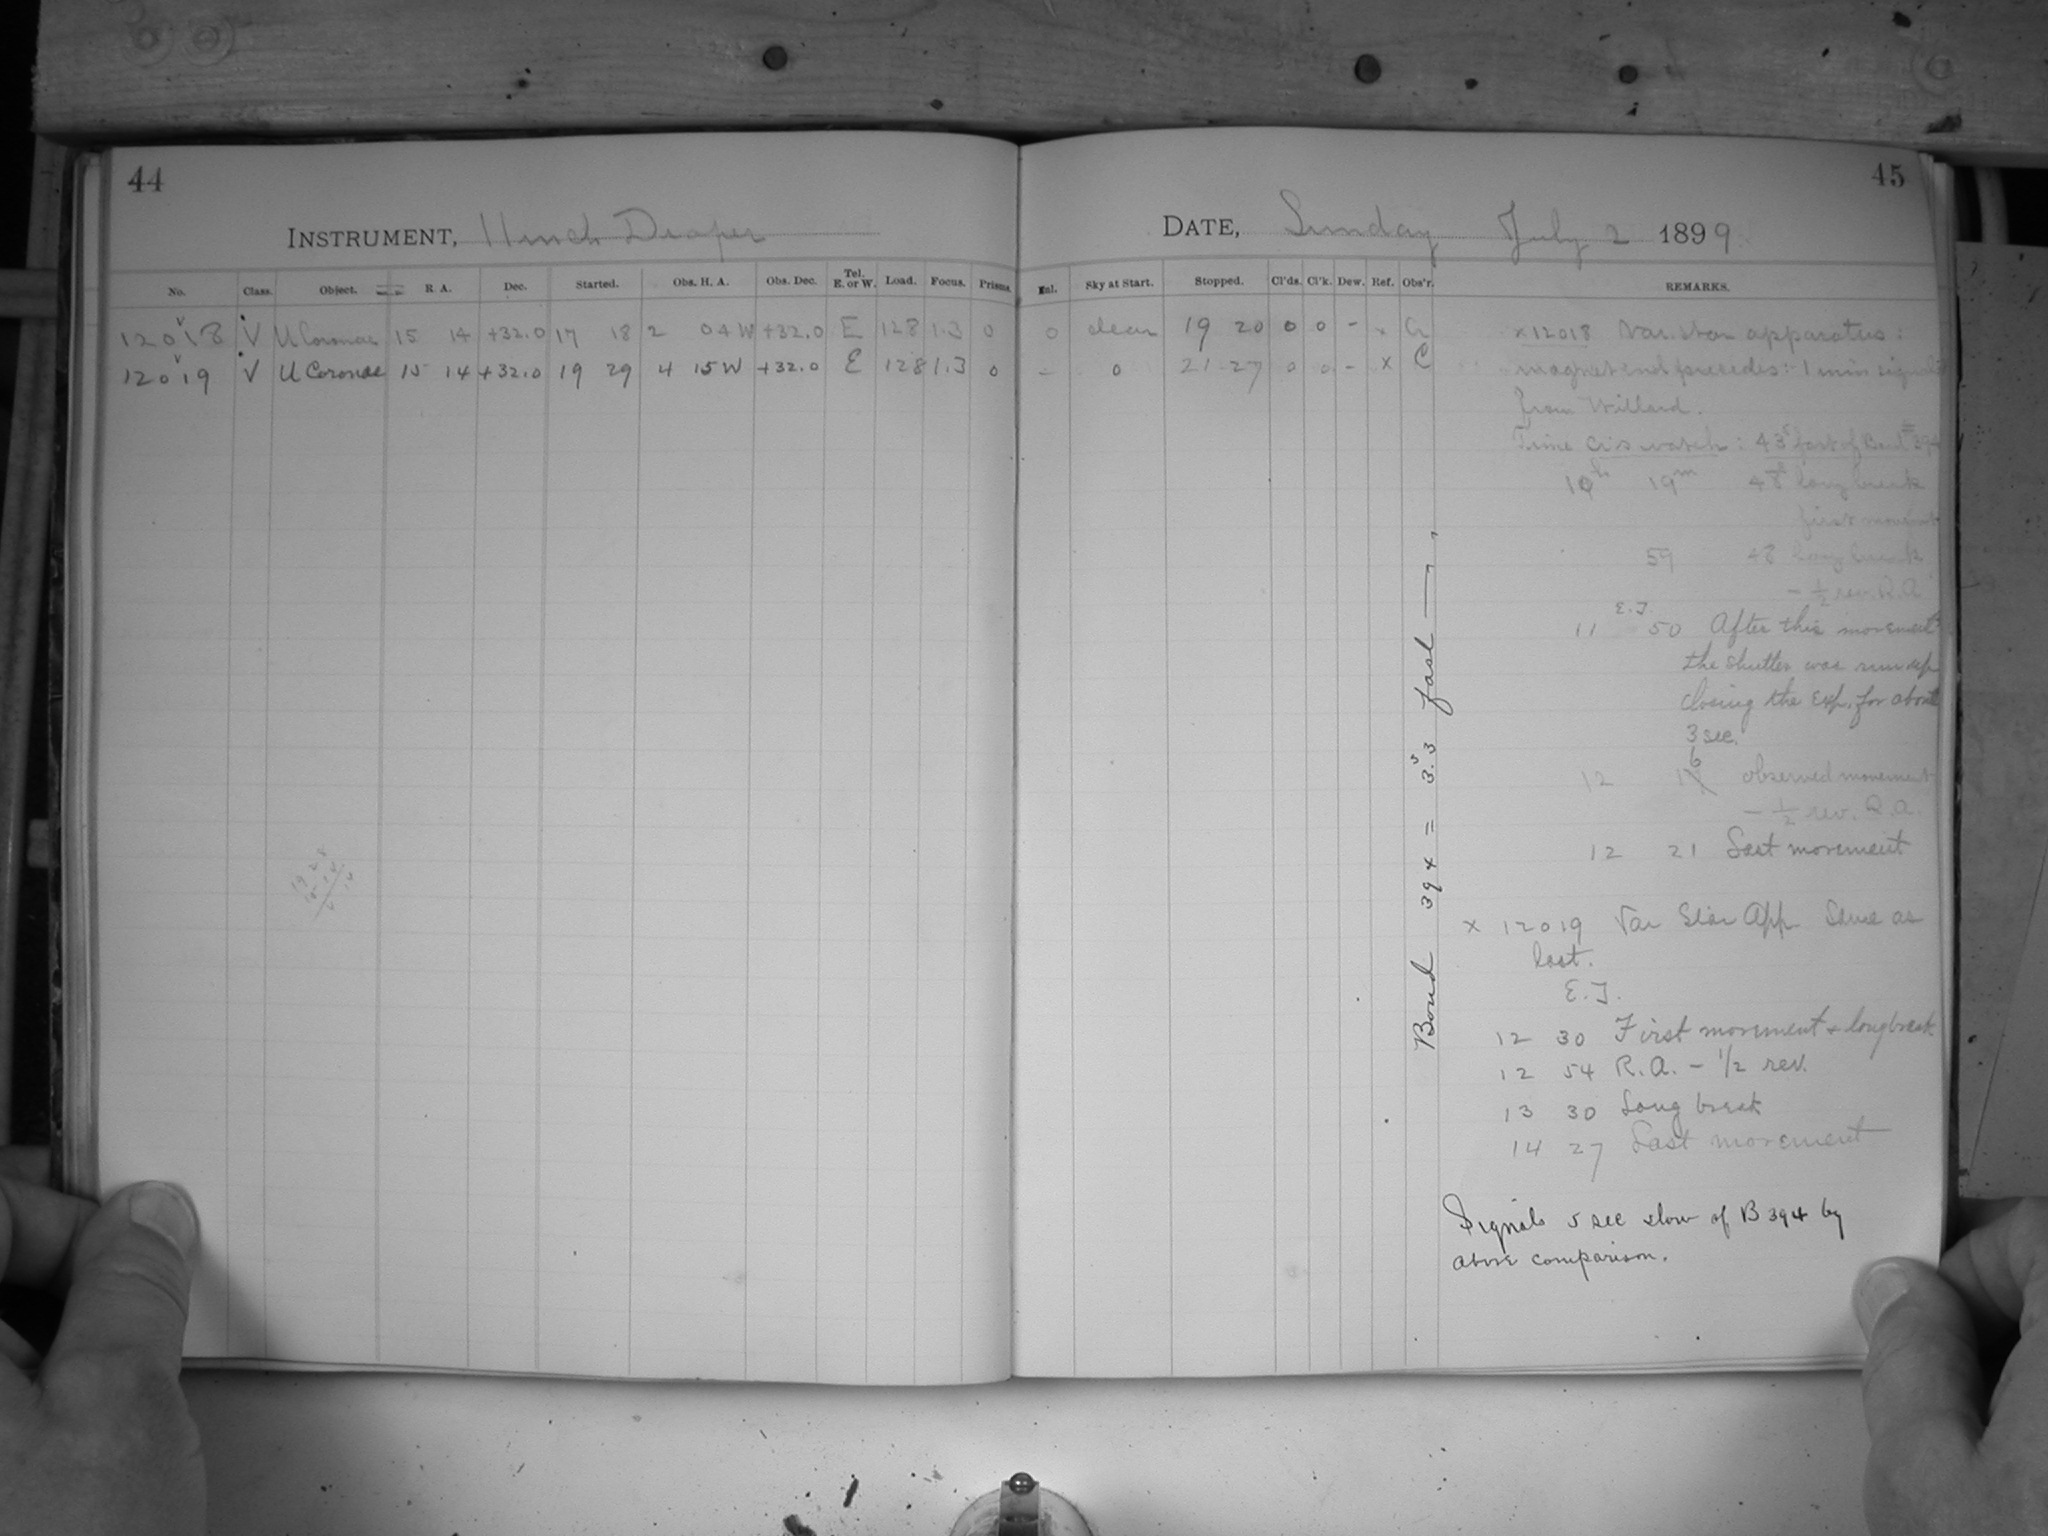 44
INSTRUMENT, 11 inch Draper
No. Class. Object. R. A. Dec. Started. Obs. H. A. Obs. Dec. Tel. E. or W. Load. Focus. Prisms.
12018 V U Coronae 15 14 +32.0 17 18 2 04 W +32.0 E 128 1.3 0
12019 V U Coronae 15 14 +32.0 19 29 4 15 W +32.0 E 128 1.3 0
45
DATE, Sunday July 2 1899
Sky at Start. Stopped. Cl'ds. Cl'k. Dew. Ref. Obs'r. REMARKS.
0 clear 19 20 0 0 - x
- 0 21 27 0 0 - x C
x 12018 Var. star apparatus:
magnet end precedes: - 1 min signals
from Willard.
Time watch: 43s fast of Bond 394
19m 48 long break
first movement
59 48 long break
- 1/2 rev. R.A.
E.J.
11 50 After this movement
the shutter was run up
closing the Exp. for about
3 sec.
12 16 observed movement
- 1/2 rev. R.A.
12 21 Last movement
x 12019 Var Star App Same as
last.
E.J.
12 30 First movement + long break
12 54 R.A. - 1/2 rev.
13 30 Long break
14 27 Last movement
Signals 5 sec slow of B 394 by
above comparison.
Bond 394 = 3.s3 fast